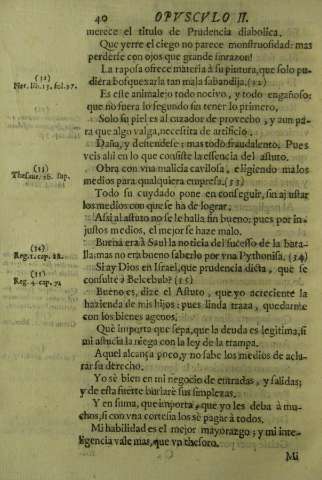 40 OPVSCVLO II.
merece el titulo de Prudencia diabolica.
Que yerre el ciego no parece monstruosidad: mas
perderse con ojos que grande sinrazon!
(32)
Pier. lib. 13. fol. 97.
La raposa ofrece materia â su pintura, que solo pu-
diera bosquexarla tan mala sabandija. (32)
Es este animalejo todo nocivo, y todo engañoso;
que no fuera lo segundo sin tener lo primero,
Solo su piel es al cazador de provecho; y aun pa-
ra que algo valga, necessita de artificio.
Daño, y defiendese; mas todo fraudalento. Pues
veis ahi en lo que consiste la essencia del astuto.
(33)
Thesaur. 16. sup.
Obra con vna malicia cavilosa, eligiendo malos
medios para qualquiera empresa. (33)
Todo su cuydado pone en conseguir, sin ajustar
los medios con que se ha de lograr.
Assi al astuto no se le halla fin bueno; pues por in-
justos medios, el mejor se haze malo.
(34)
Reg. 1. cap. 28.
Buena era â Saul la noticia del sucesso de la bata-
lla; mas no era bueno saberlo por vna Pythonisa. (34)
(35)
Reg. 4. cap. 1.
Si ay Dios en Israel, que prudencia dicta, que se
consulte â Belcebub? (35)
Bueno es, dize el Astuto, que yo acreciente la
hazienda de mis hijos: pues linda traza, quedarme
con los bienes agenos.
Què importa que sepa, que la deuda es legitima, si
mi astucia la niega con la ley de la trampa.
Aquel alcança poco, y no sabe los medios de acla-
rar su derecho.
Yo sè bien en mi negocio de entradas, y salidas;
y de esta suerte burlarè sus simplezas.
Y en suma, que importa, que yo les deba â mu-
chos, si con vna cortesia los sè pagar â todos.
Mi habilidad es el mejor mayorazgo; y mi inte-
ligencia vale mas, que vn thesoro.
Mi